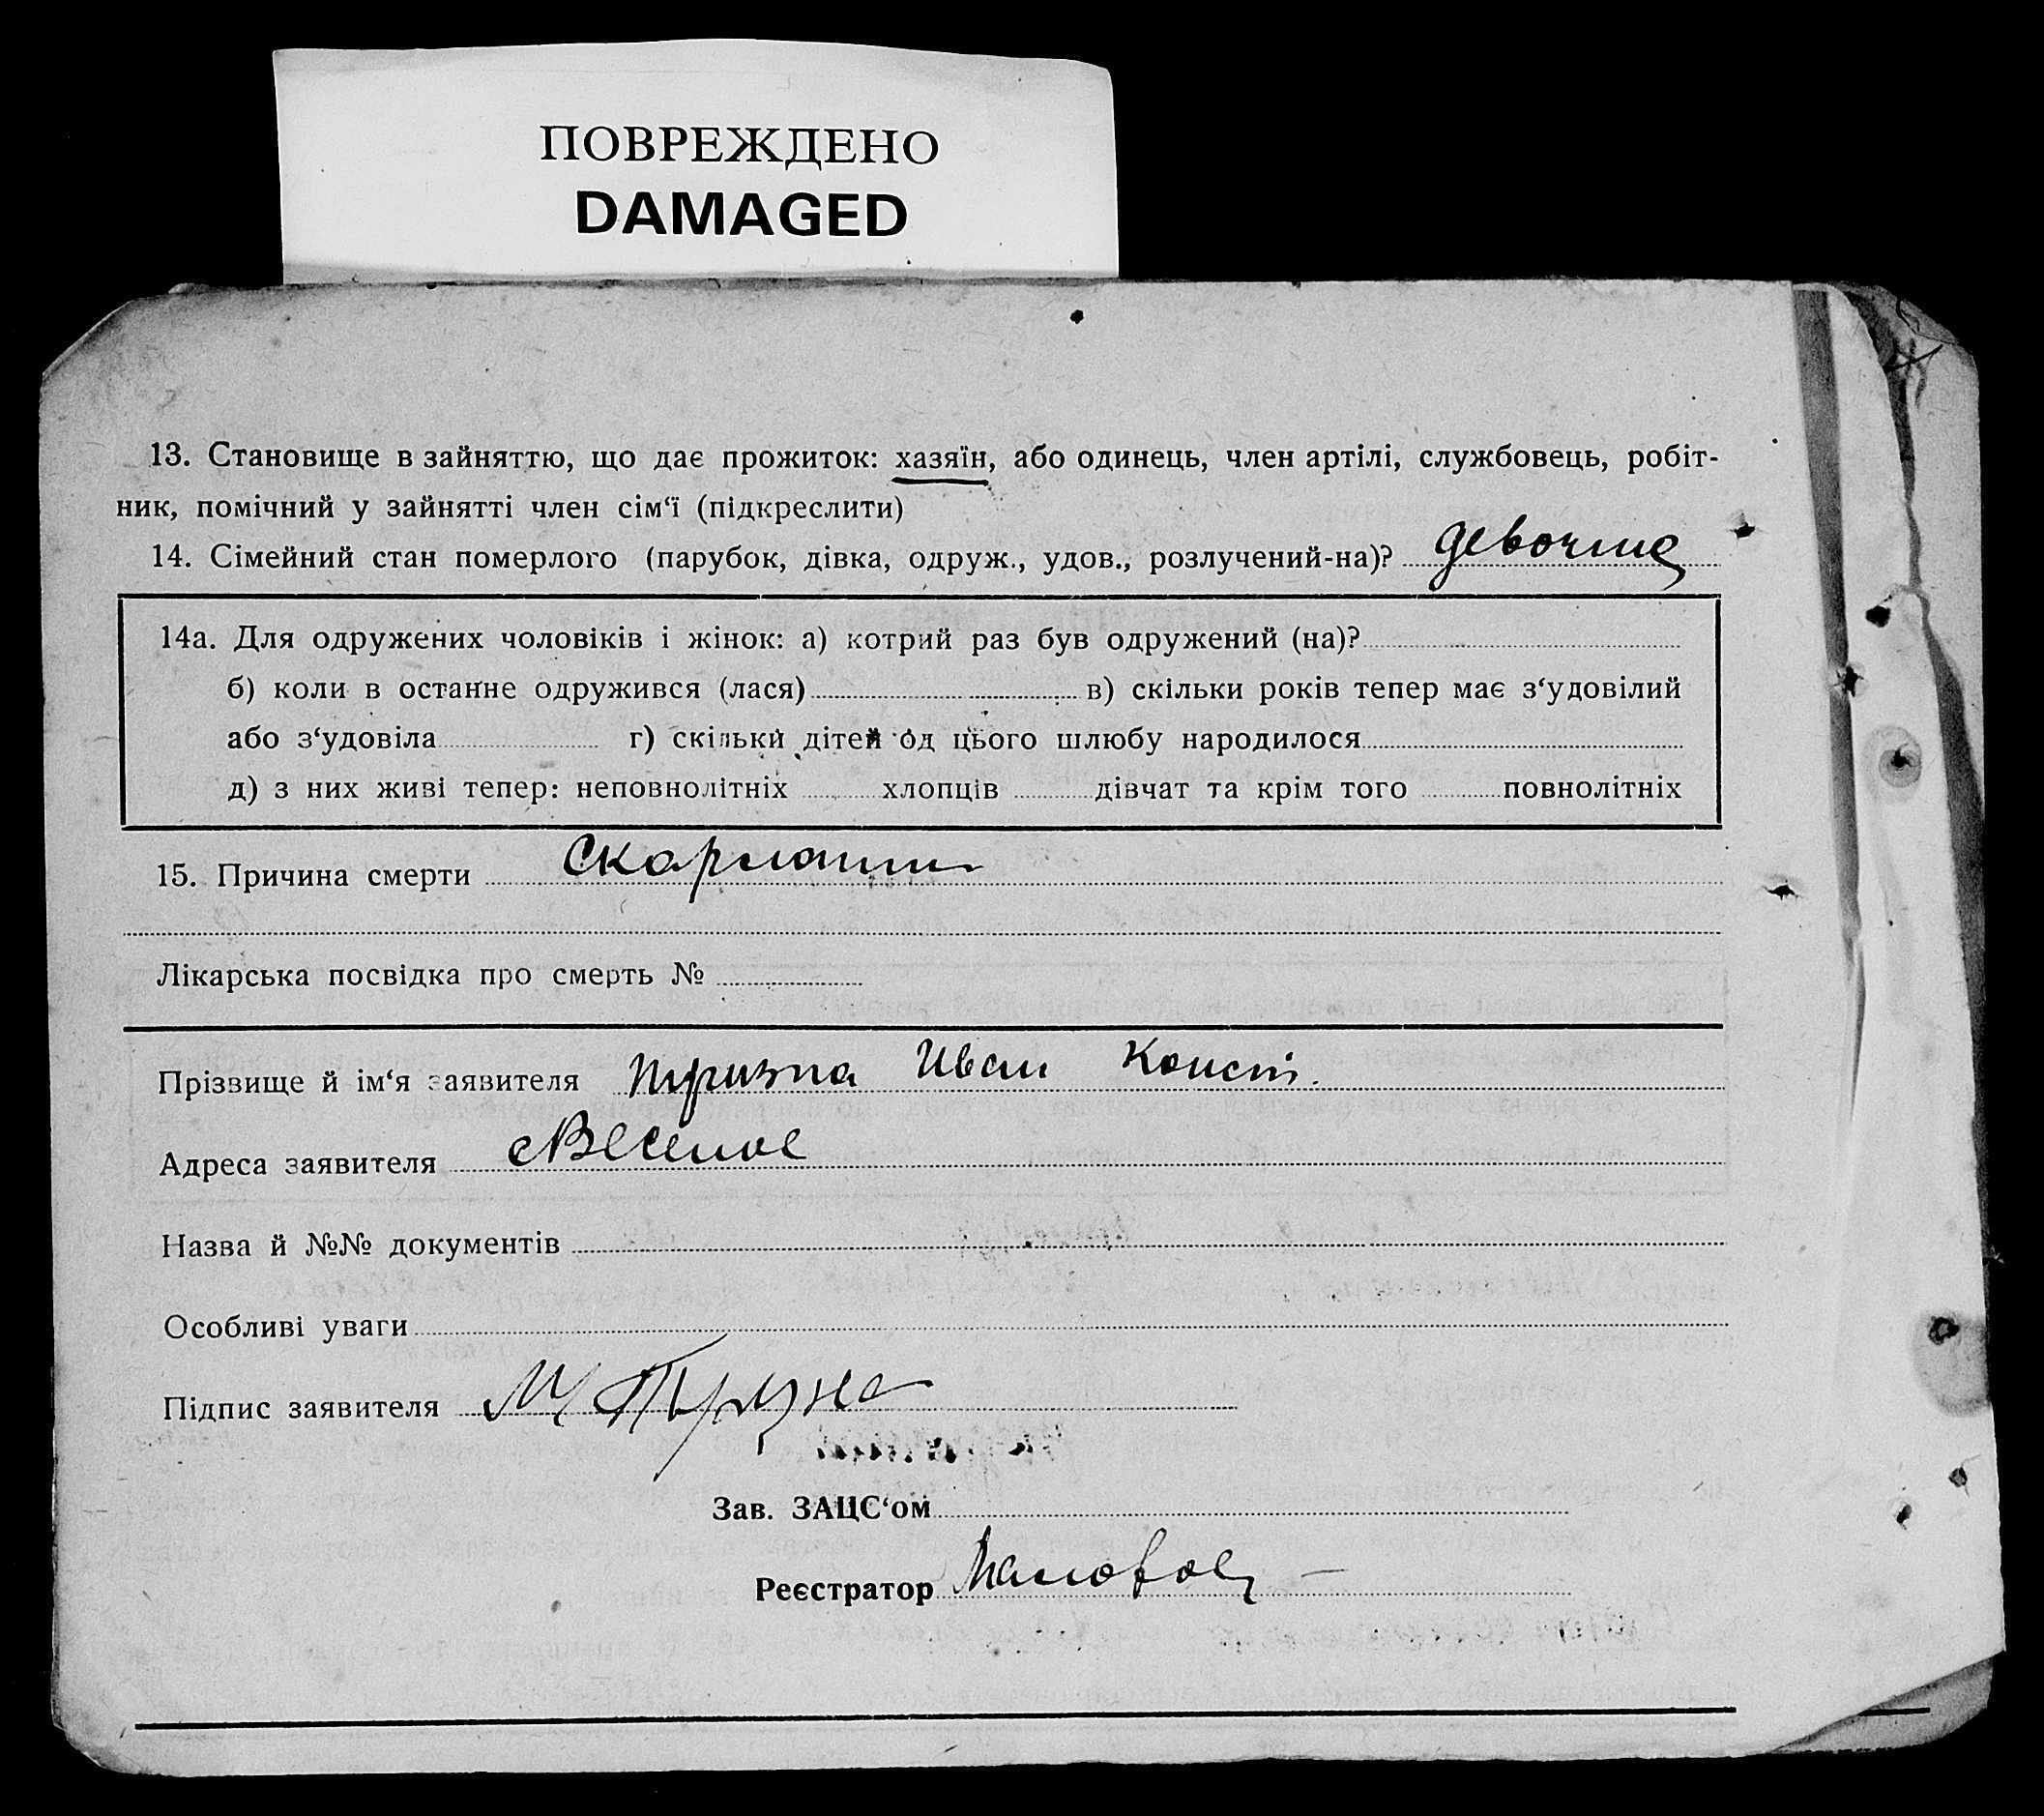 ПОВРЕЖДЕНО
DAMAGED
13. Становище в зайняттю, що дає прожиток: хазяїн, або одинець, член артілі, службовець, робіт-
ник, помічний у зайнятті член сім‘ї (підкреслити)
14. Сімейний стан померлого (парубок, дівка, одруж., удов., розлучений-на)?
14а. Для одружених чоловіків і жінок: а) котрий раз був одружений (на)?
б) коли в останнє одружився (лася) в) скільки років тепер має з‘удовілий
або з‘удовіла г) скільки дітей од цього шлюбу народилося
д) з них живі тепер: неповнолітніх хлопців дівчат та крім того повнолітніх
15. Причина смерти Скарлатин
Лікарська посвідка про смерть №
Прізвище й ім‘я заявителя Иван Конст.
Адреса заявителя с Веселое
Назва й №№ документів
Особливі уваги
Підпис заявителя
Зав. ЗАЦС‘ом
Реєстратор